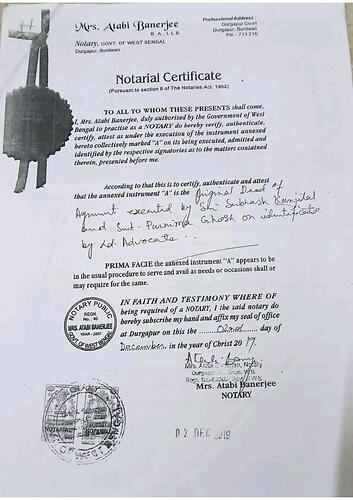 Mrs. Atabi Banerjee
B. A., L L B
Notary, GOVT. OF WEST BENGAL
Durgapur, Burdwan
Professional Address :
Durgapur Court
Durgapur, Burdwan
Pin - 713 216
Notarial Certificate
(Pursuant to section 8 of The Notaries Act. 1952)
TO ALL TO WHOM THESE PRESENTS shall come,
I, Mrs. Atabi Banerjee, duly authorised by the Government of West
Bengal to practise as a NOTARY do hereby verify, authenticate,
certify, attest as under the execution of the instrument annexed
hereto collectively marked "A" on its being executed, admitted and
identified by the respective signatories as to the matters contained
therein, presented before me.
According to that this is to certify, authenticate and attest
that the annexed instrument "A" is the Original Deed of
Agreement executed by Sri Subhash Kanjilal
and Smt- Purnima Ghosh on identification
by Ld Advocate
PRIMA FACIE the annexed instrument "A" appears to be
in the usual procedure to serve and avail as needs or occasions shall or
may require for the same.
IN FAITH AND TESTIMONY WHERE OF
being required of a NOTARY, I the said notary do
hereby subscribe my hand and affix my seal of office
at Durgapur on this the 02nd day of
December in the year of Christ 2019.
NOTARY PUBLIC
REGN.
No.: 40
MRS. ATABI BANERJEE
YEAR - 2007
GOVT. OF WEST BENGAL
Mrs. Atabi Banerjee, Notary
Mrs. Atabi Banerjee
NOTARY
NOTARIAL
NOTARIAL
02 DEC 2019